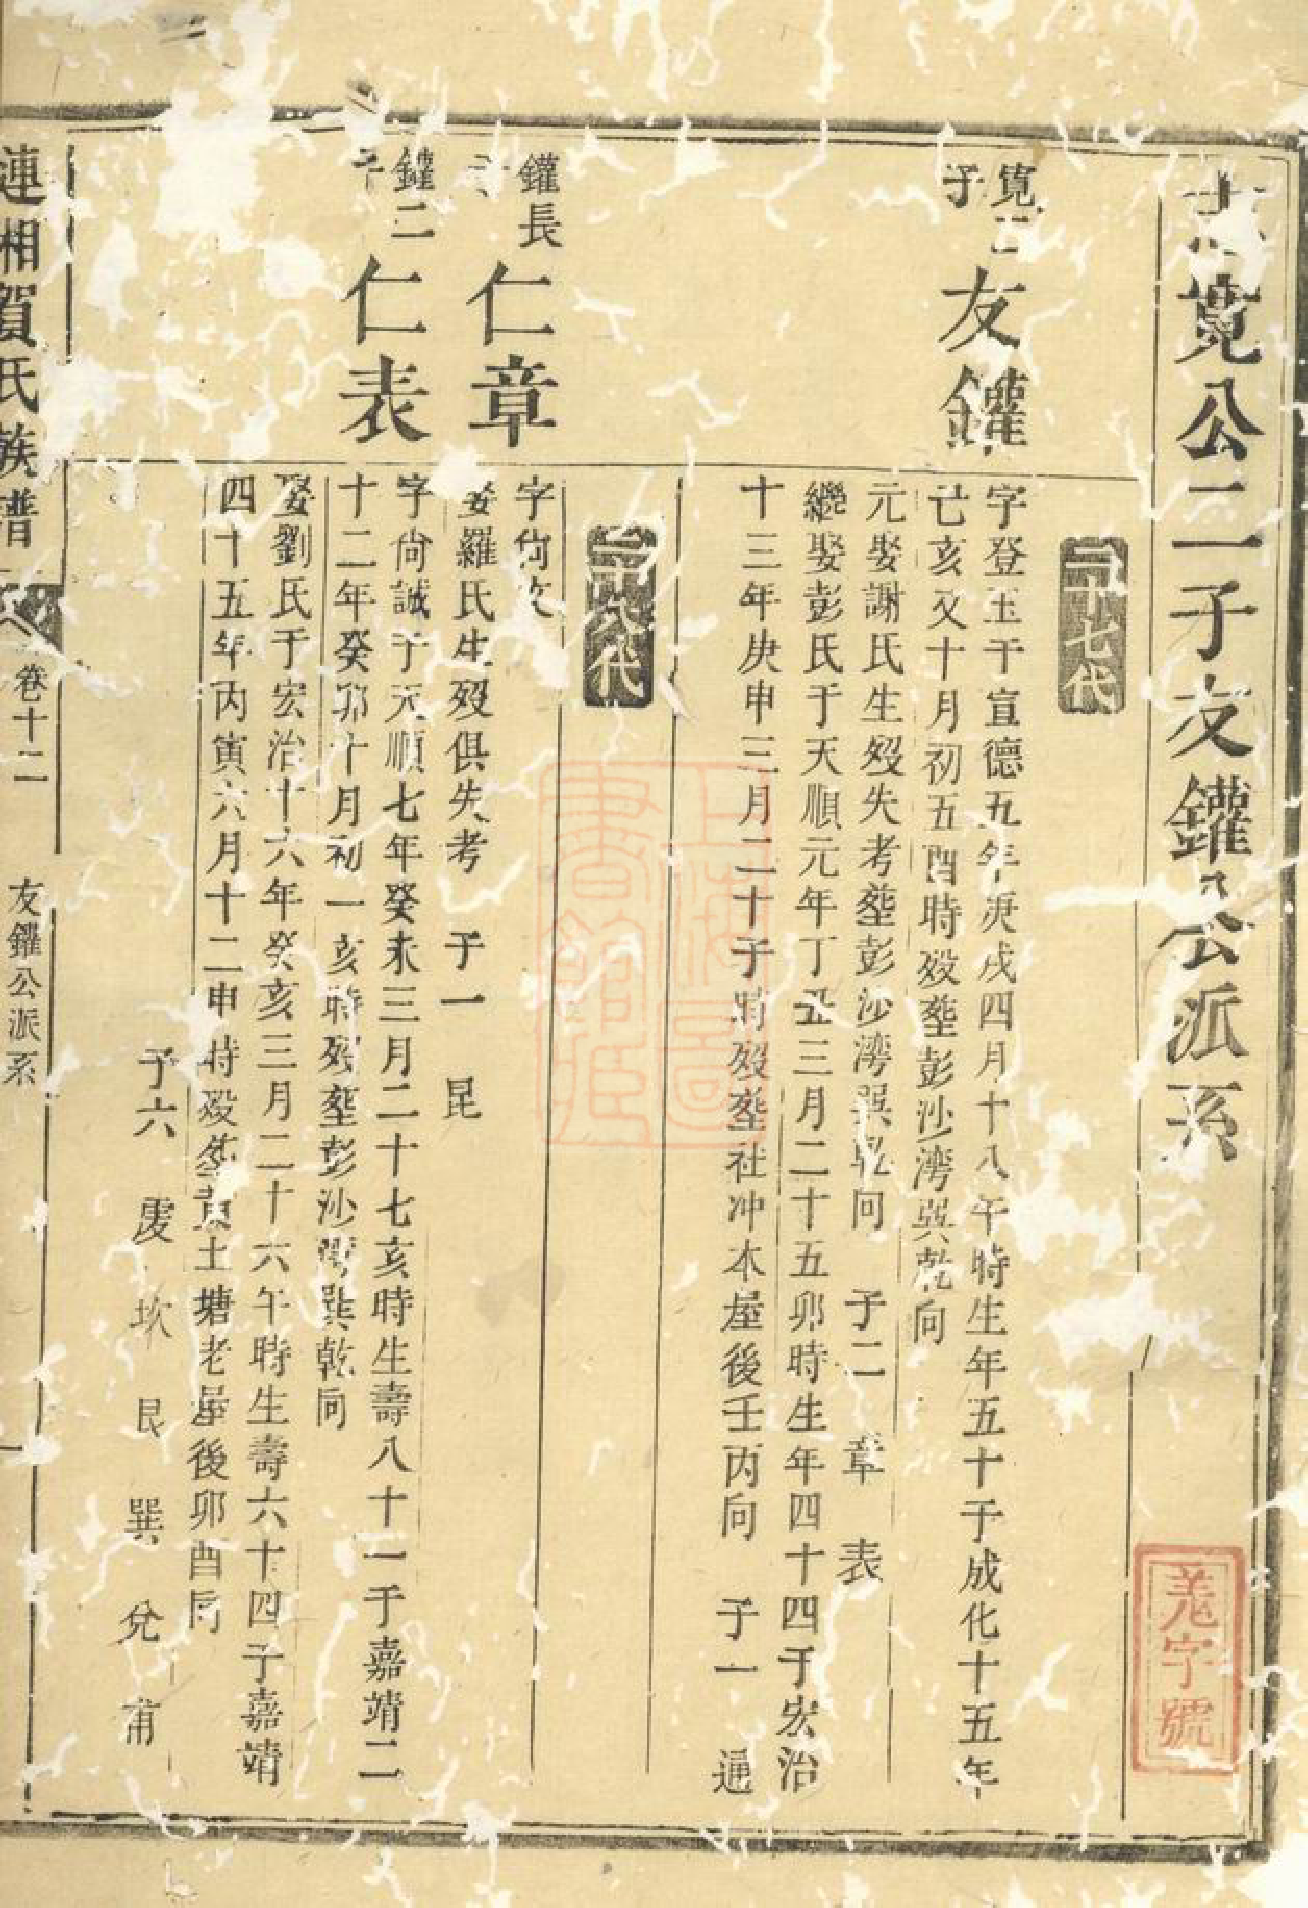 志寬公二子友鑵公派系
二十七代
寬二子
友鑵
字登玉于宣德五年庚戌四月十八午時生年五十于成化十五年
己亥又十月初五酉時歿塟彭沙灣巽乾向
元娶謝氏生歿失考塟彭沙灣巽乾向 子二 章 表
繼娶彭氏于天順元年丁丑三月二十五卯時生年四十四于宏治
十三年庚申三月二十子時歿塟社冲本屋後壬丙向 子一 通
二十八代
鑵長子
仁章
字尙文
娶羅氏生歿俱失考 子一 昆
鑵二子
仁表
字尙誠于天順七年癸未三月二十七亥時生壽八十一于嘉靖二
十二年癸卯十月初一亥時歿塟彭沙灣巽乾向
娶劉氏于宏治十六年癸亥三月二十六午時生壽六十四于嘉靖
四十五年丙寅六月十二申時歿塟黄土塘老屋後卯酉向
子六 慶 坎 艮 巽 兌 甫
漣湘賀氏族譜 卷十二 友鑵公派系 一
羌字號
上海圖書館藏